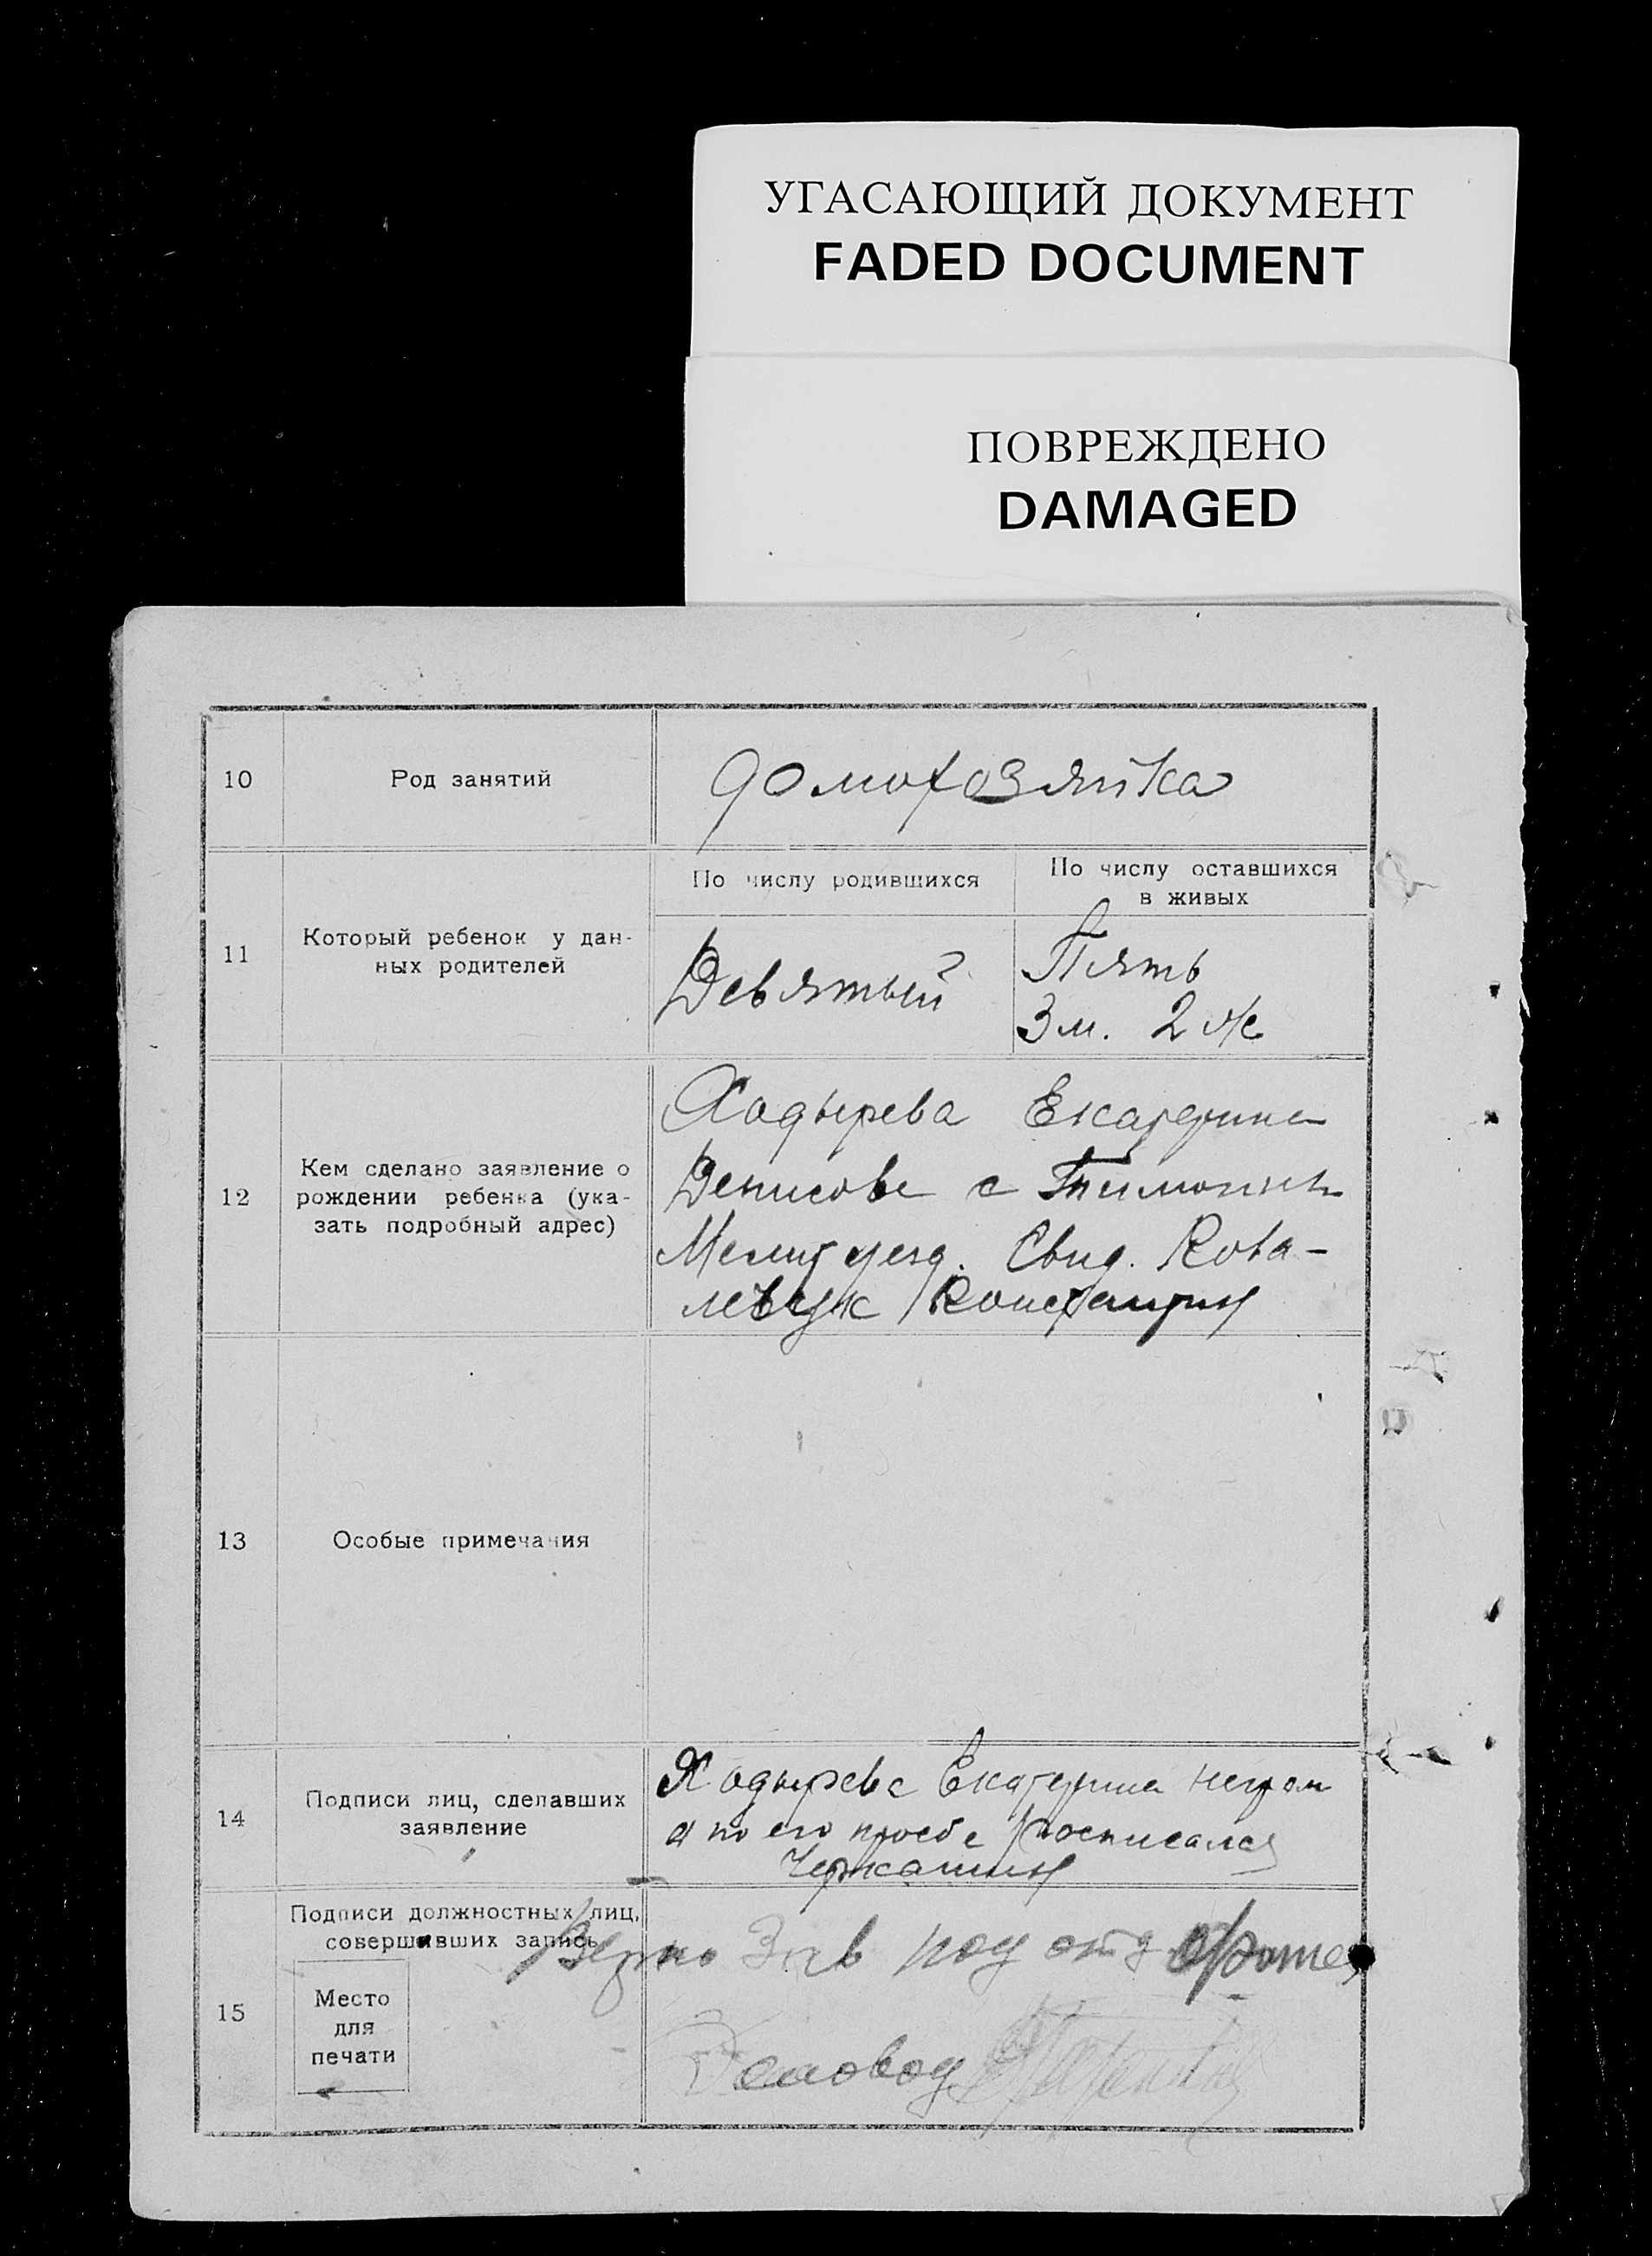 УГАСАЮЩИЙ ДОКУМЕНТ
FADED DOCUMENT
ПОВРЕЖДЕНО
DAMAGED
10
Род занятий
домохозяйка
11
Который ребенок у дан-
ных родителей
По числу родившихся
По числу оставшихся
в живых
Девятый
Пять
3 м. 2 ж
12
Кем сделано заявление о
рождении ребенка (ука-
зать подробный адрес)
Ходырева Екатерина
Денисова с
Мелит уезд. Свид. Кова-
левук Константин
13
Особые примечания
14
Подписи лиц, сделавших
заявление
Ходырева Екатерина неграм
а по его просбе росписался
Черкашин
15
Подписи должностных лиц,
совершивших запись
Место
для
печати
Верно Зав под отд
Деловод